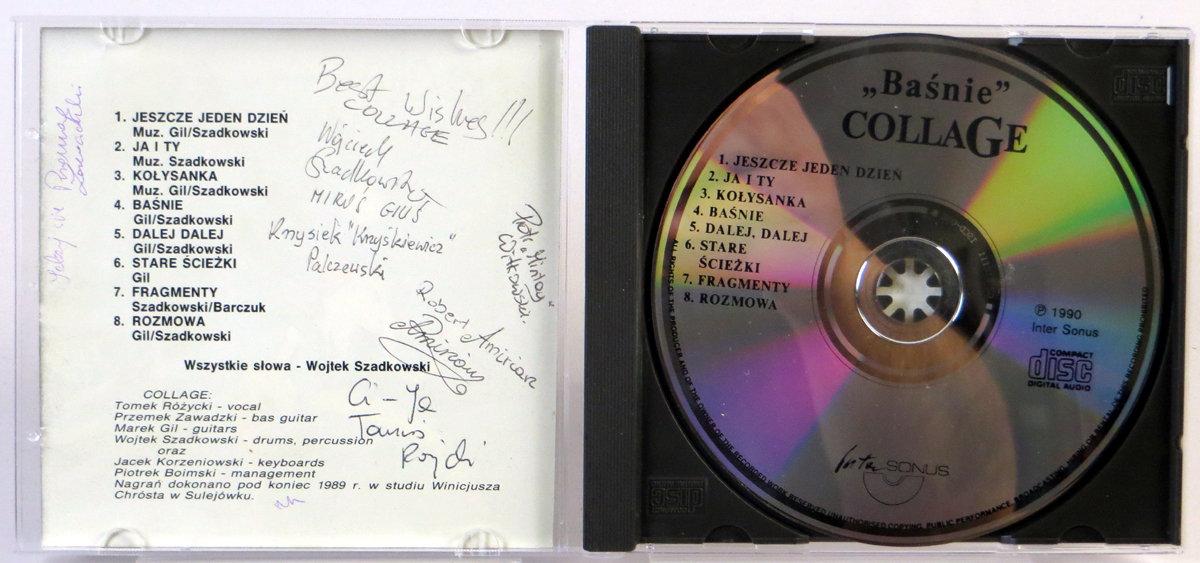 1. JESZCZE JEDEN DZIEŃ
Muz. Gil/Szadkowski
2. JA I TY
Muz. Szadkowski
3. KOŁYSANKA
Muz. Gil/Szadkowski
4. BAŚNIE
Gil/Szadkowski
5. DALEJ DALEJ
Gil/Szadkowski
6. STARE ŚCIEŻKI
Gil
7. FRAGMENTY
Szadkowski/Barczuk
8. ROZMOWA
Gil/Szadkowski
Wszystkie słowa - Wojtek Szadkowski
COLLAGE:
Tomek Różycki - vocal
Przemek Zawadzki - bas guitar
Marek Gil - guitars
Wojtek Szadkowski - drums, percussion
oraz
Jacek Korzeniowski - keyboards
Piotrek Boimski - management
Nagrań dokonano pod koniec 1989 r. w studiu Winicjusza
Chrósta w Sulejówku.
Best Wishes!!!
COLLAGE
Wojciech
Szadkowski
MIRUS GIUŚ
Krzysiek "Krzyśkiewicz"
Palczewski
Piotr "Mintay"
Witkowski.
Robert Amirian
Amirian
„Baśnie”
COLLAGE
1. JESZCZE JEDEN DZIEŃ
2. JA I TY
3. KOŁYSANKA
4. BAŚNIE
5. DALEJ, DALEJ
6. STARE
ŚCIEŻKI
7. FRAGMENTY
8. ROZMOWA
Ⓟ 1990
Inter Sonus
COMPACT
disc
DIGITAL AUDIO
Inter SONUS
ALL RIGHTS OF THE PRODUCER AND OF THE OWNER OF THE RECORDED WORK RESERVED. UNAUTHORISED COPYING, PUBLIC PERFORMANCE, BROADCASTING
disc
disc